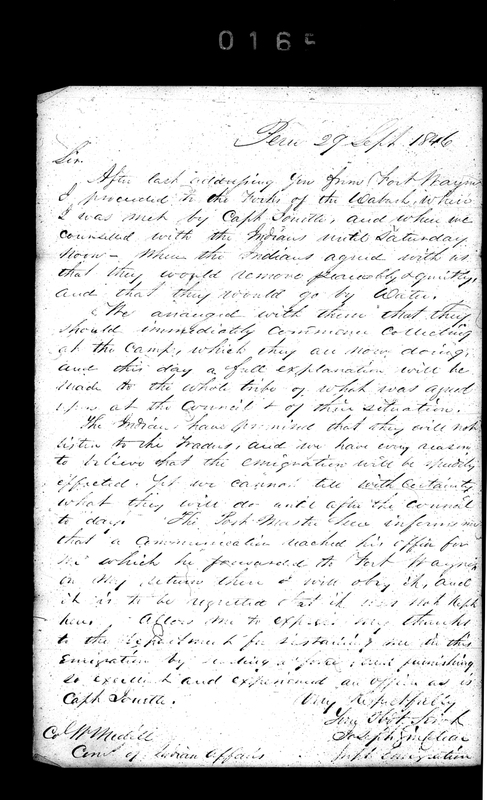 0165
Peru 29 Sept 1846
Sir
After last addressing you from Fort Wayne
I proceeded to the Forks of the Wabash, where
I was met by Capt Jouett, and where we
counselled with the Indians until Saturday
Noon – When the Indians agreed with us
that they would remove peaceably & quietly,
and that they would go by Water.
We arranged with them that they
should immediately commence collecting
at the Camp, which they are now doing,
and this day a full explanation will be
made to the whole tribe of what was agreed
upon at the Council & of their situation.
The Indians have promised that they will not
listen to the Traders, and we have every reason
to believe that the emigration will be speedily
effected. Yet we cannot tell with Certainty
what they will do until after the council
to day. The Post Master here informs me
that a Communication reached his office for
me which he forwarded to Fort Wayne,
on my return there I will obey it, and
it is to be regretted that it was not kept
here. Allow me to express my thanks
to the Department for sustaining me in this
Emigration by sending a force, and furnishing
so excellent and experienced an officer as is
Capt Jouett.
Very Respectfully
Your Obt Servt
Joseph Sinclear
Supt Emigration
Col W Medill
Comr of Indian Affairs